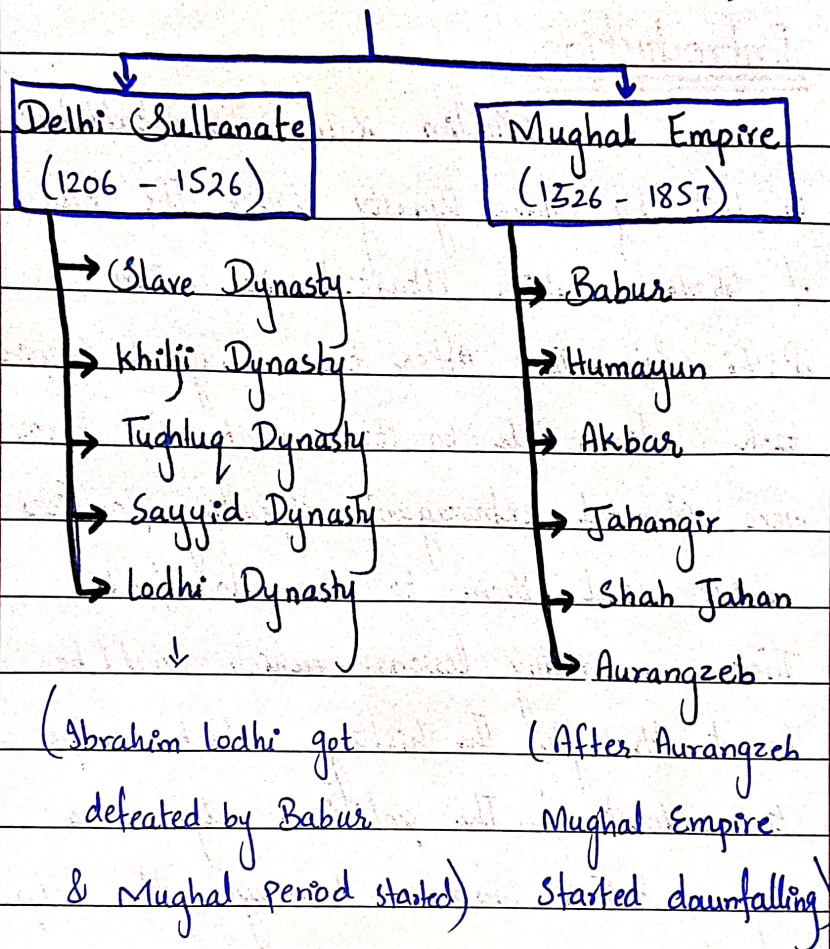 Delhi Sultanate
(1206 - 1526)
Slave Dynasty
Khilji Dynasty
Tughluq Dynasty
Sayyid Dynasty
Lodhi Dynasty
(Ibrahim Lodhi got
defeated by Babur
& Mughal period started)
Mughal Empire
(1526 - 1857)
Babur
Humayun
Akbar
Jahangir
Shah Jahan
Aurangzeb
(After Aurangzeb
Mughal Empire
Started daunfalling)